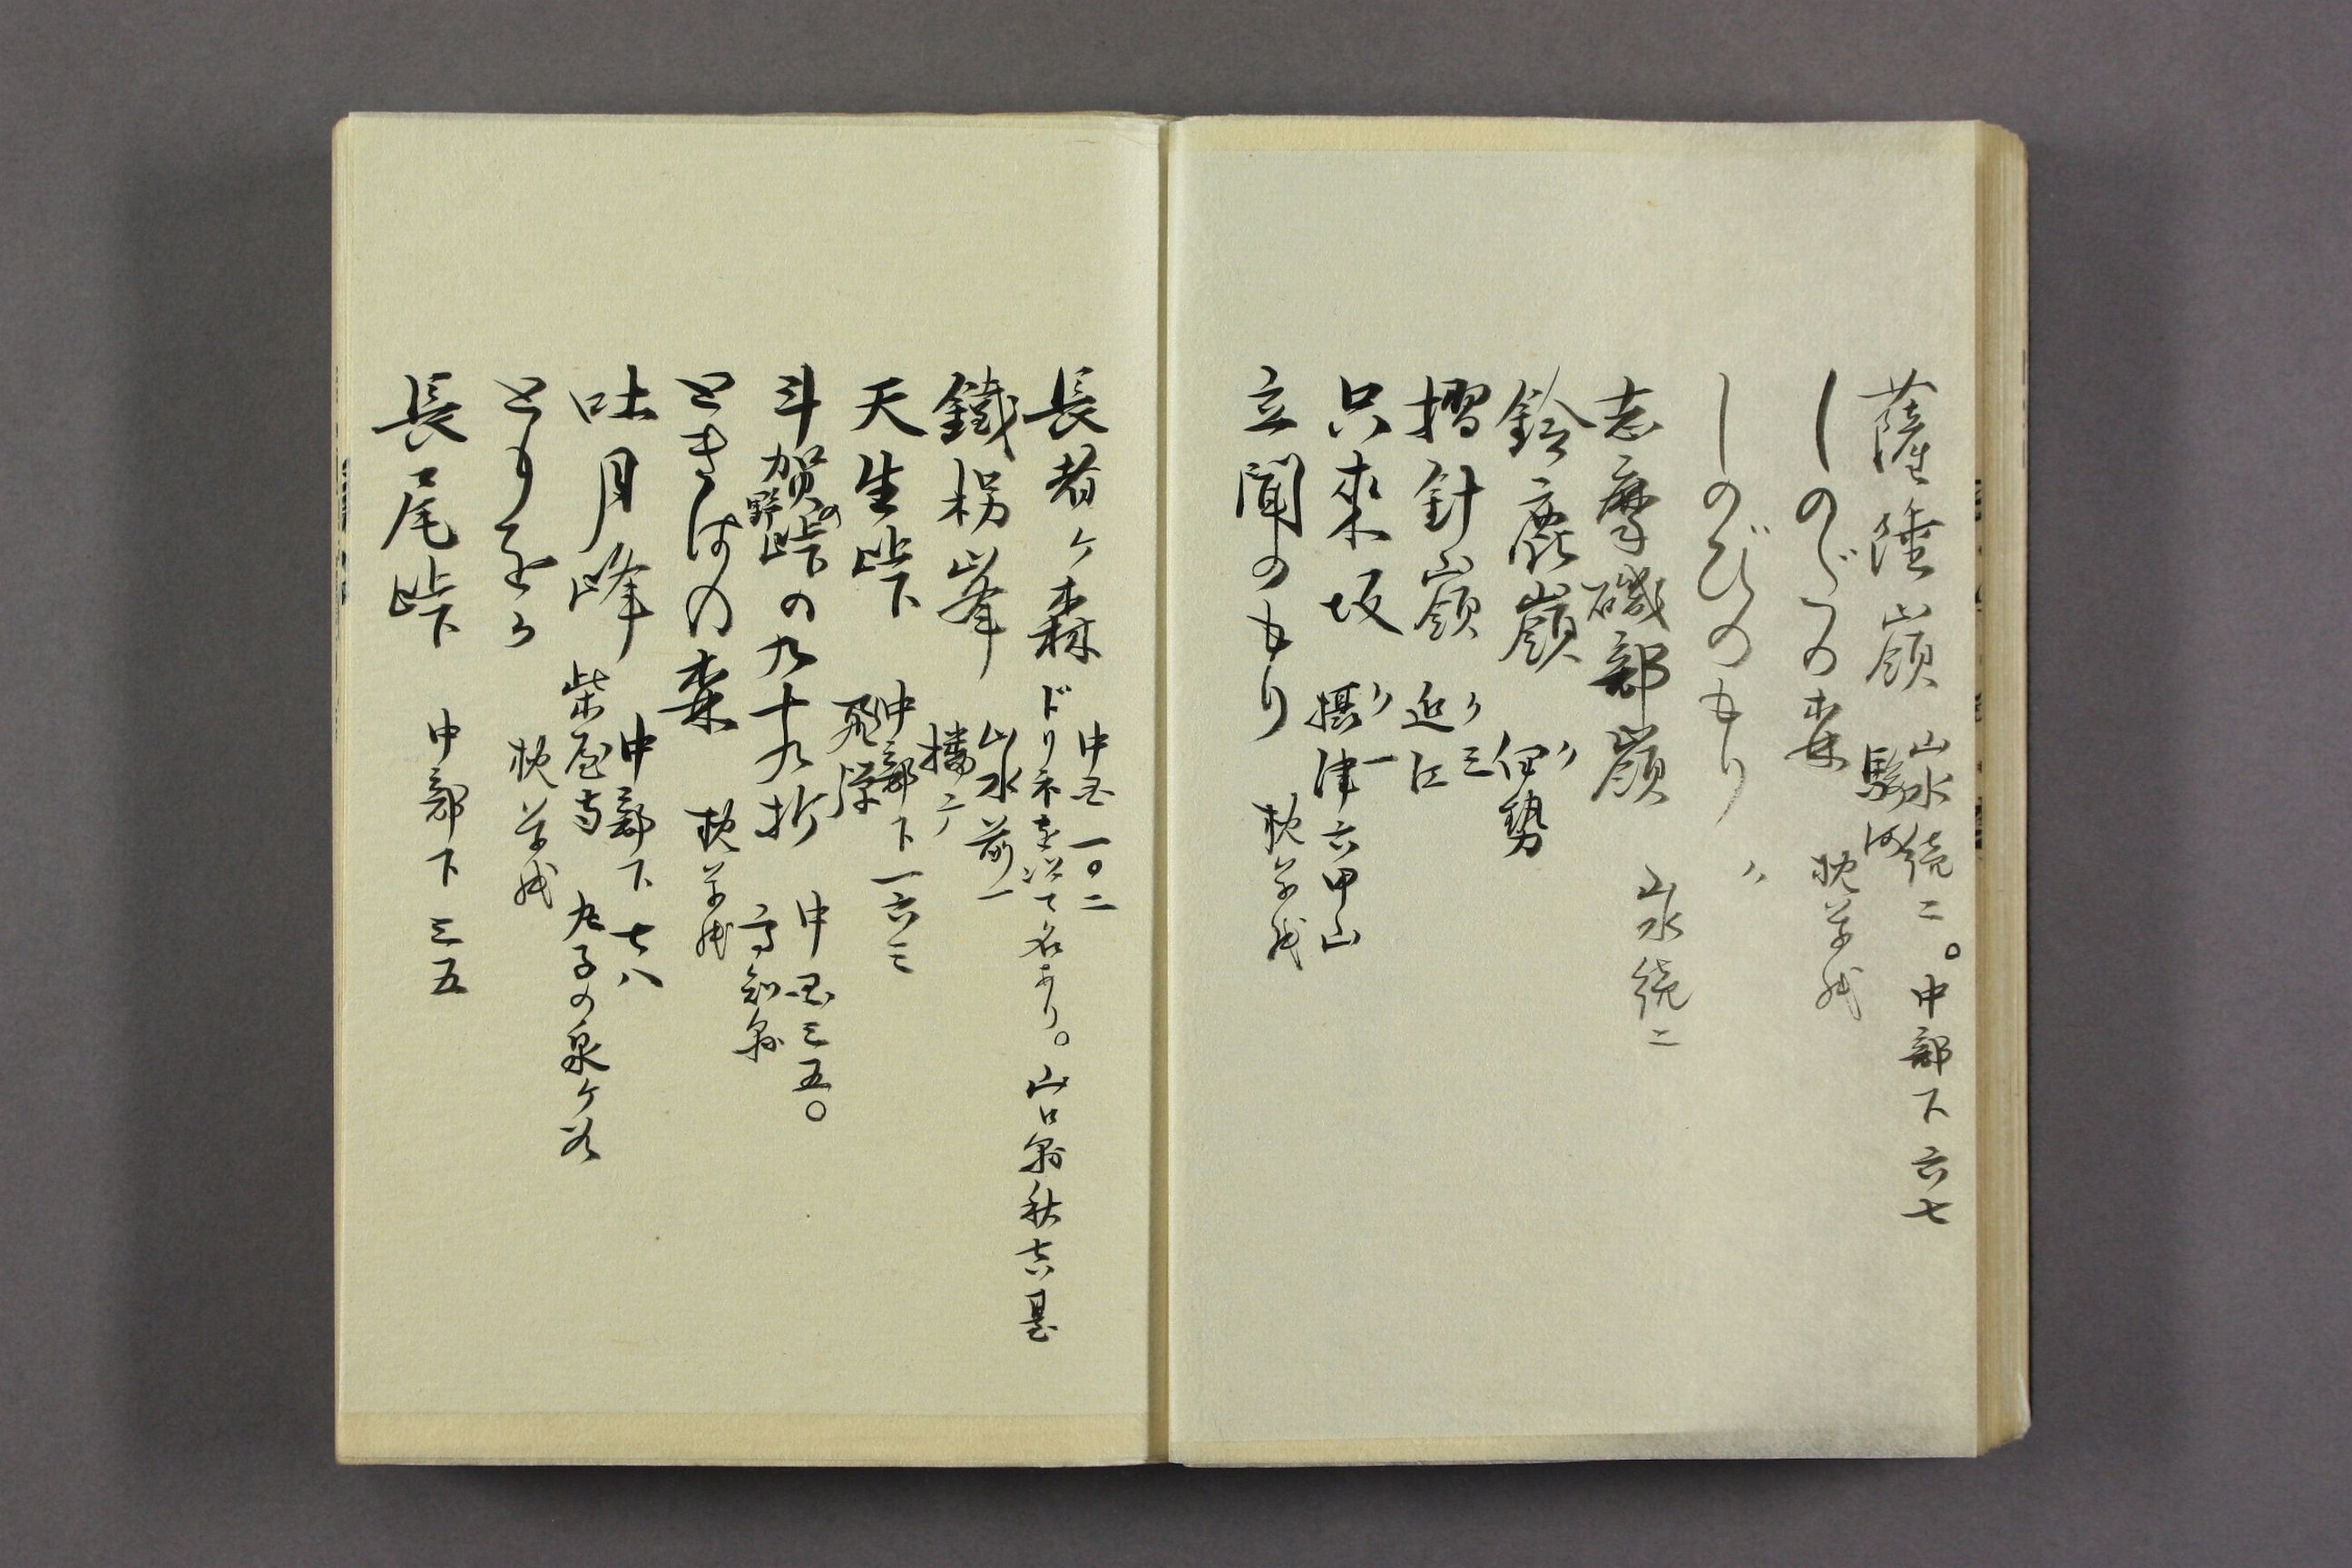 薩埵嶺 山水続二。中部下六七
駿河
しのだの森 枕草紙
しのびのもり 〃
志摩磯部嶺 山水続二
鈴鹿嶺 〃 伊勢
摺針嶺 〃三 近江
只来坂 〃一 摂津六甲山
立聞のもり 枕草紙
長者ヶ森 中国一〇二
ドリネを以て名あり。山口県秋吉臺
鐵拐峯 山水前一
播广
天生峠 中部下一六三
飛騨
斗賀野の峠の九十九折 中国三五〇
高知県
ときはの森 枕草紙
吐月峰 中部下七八
柴屋寺 丸子の泉ヶ谷
枕草紙
長尾峠 中部下三五